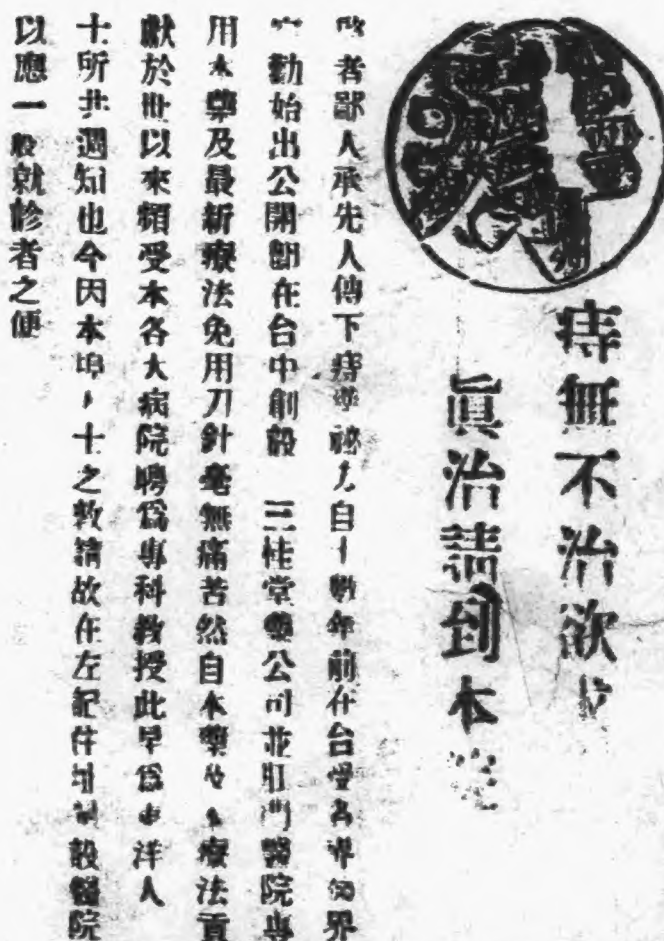 痔無不治欲
真治請到本
啟者鄙人承先人傳下痔瘡祕方自十數年前在台受各界
勸始出公開卽在台中創設 三桂堂藥公司並肛門醫院專
用本藥及最新療法免用刀針毫無痛苦然自本藥及療法貢
獻於世以來頻受本各大病院聘爲專科教授此早爲東洋人
士所共週知也今因本埠人士之敦請故在左記住址開設醫院
以應一般就診者之便